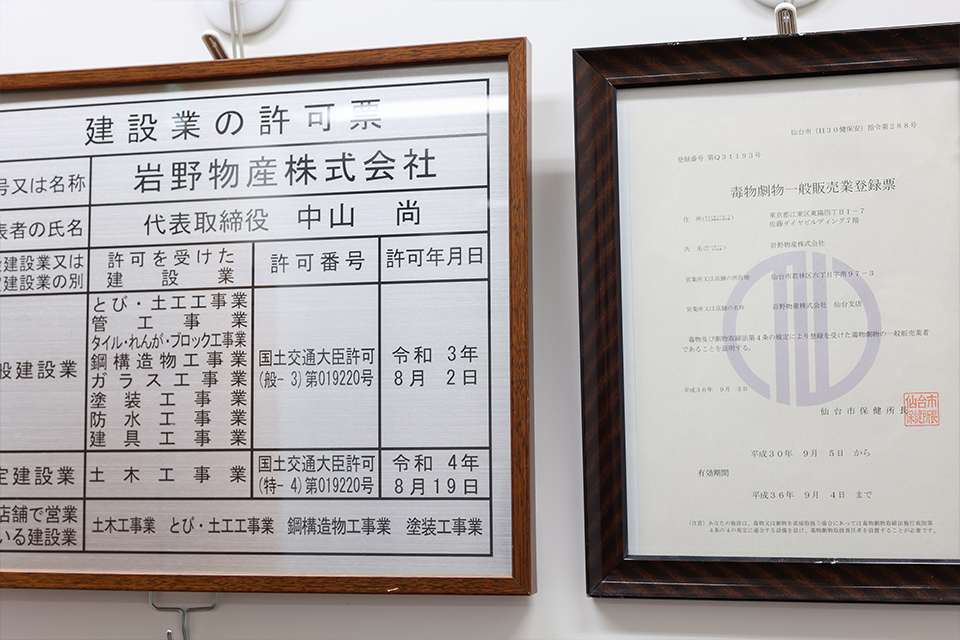 建設業の許可票
号又は名称 岩野物産株式会社
表者の氏名 代表取締役 中山 尚
建設業又は
建設業の別
許可を受けた
建設業
許可番号
許可年月日
般建設業
とび・土工工事業
管工事業
タイル・れんが・ブロック工事業
鋼構造物工事業
ガラス工事業
塗装工事業
防水工事業
建具工事業
国土交通大臣許可
(般-3)第019220号
令和 3年
8月 2日
定建設業
土木工事業
国土交通大臣許可
(特-4)第019220号
令和 4年
8月19日
店舗で営業
いる建設業
土木工事業 とび・土工工事業 鋼構造物工事業 塗装工事業
仙台市（H30健保安）指令第288号
登録番号 第Q31193号
毒物劇物一般販売業登録票
住 所
東京都江東区東陽四丁目1-7
佐藤ダイヤビルディング7階
氏 名
岩野物産株式会社
営業所又は店舗の所在地 仙台市若林区六丁目字南97-3
営業所又は店舗の名称 岩野物産株式会社 仙台支店
毒物及び劇物取締法第4条の規定により登録を受けた毒物劇物の一般販売業者
であることを証明する。
平成30年 9月 5日
仙台市保健所長
平成30年 9月 5日 から
有効期間
平成36年 9月 4日 まで
（注意）あなたの施設は、毒物又は劇物を直接取扱う場合にあっては毒物劇物取締法施行規則第
4条の4の規定に適合する設備を設け、毒物劇物取扱責任者を設置することが必要です。